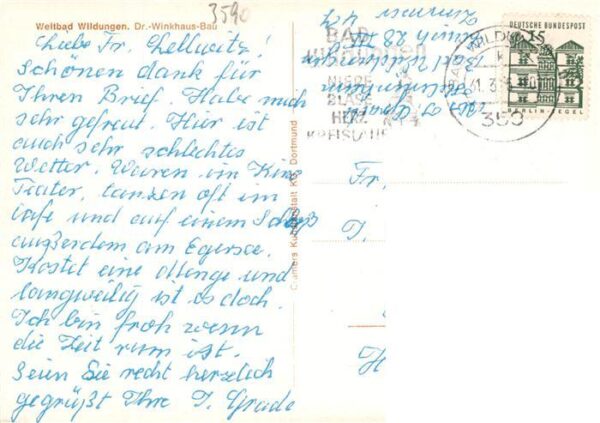 3590
Weltbad Wildungen. Dr.-Winkhaus-Bau
Liebe Fr. Zellwitz!
Schönen dank für
Ihren Brief. Habe mich
sehr gefreut. Hier ist
auch sehr schlechtes
Wetter. Waren im Kino
Teater, tanzen oft im
cafe und auf einem Schloß
außerdem am Edersee.
Kostet eine Menge und
langweilig ist es doch.
Ich bin froh wenn
die Zeit rum ist.
Seien Sie recht herzlich
gegrüßt Ihre I. Grade
Cramers Kunstanstalt KG, Dortmund
BAD
WILDUNGEN
NIERE
BLASE
HERZ
KREISLAUF
WILDUNGEN
353
15
DEUTSCHE BUNDESPOST
BERLIN-TEGEL
Zimmer 47
Bad Wildungen
Fr.
I.
H